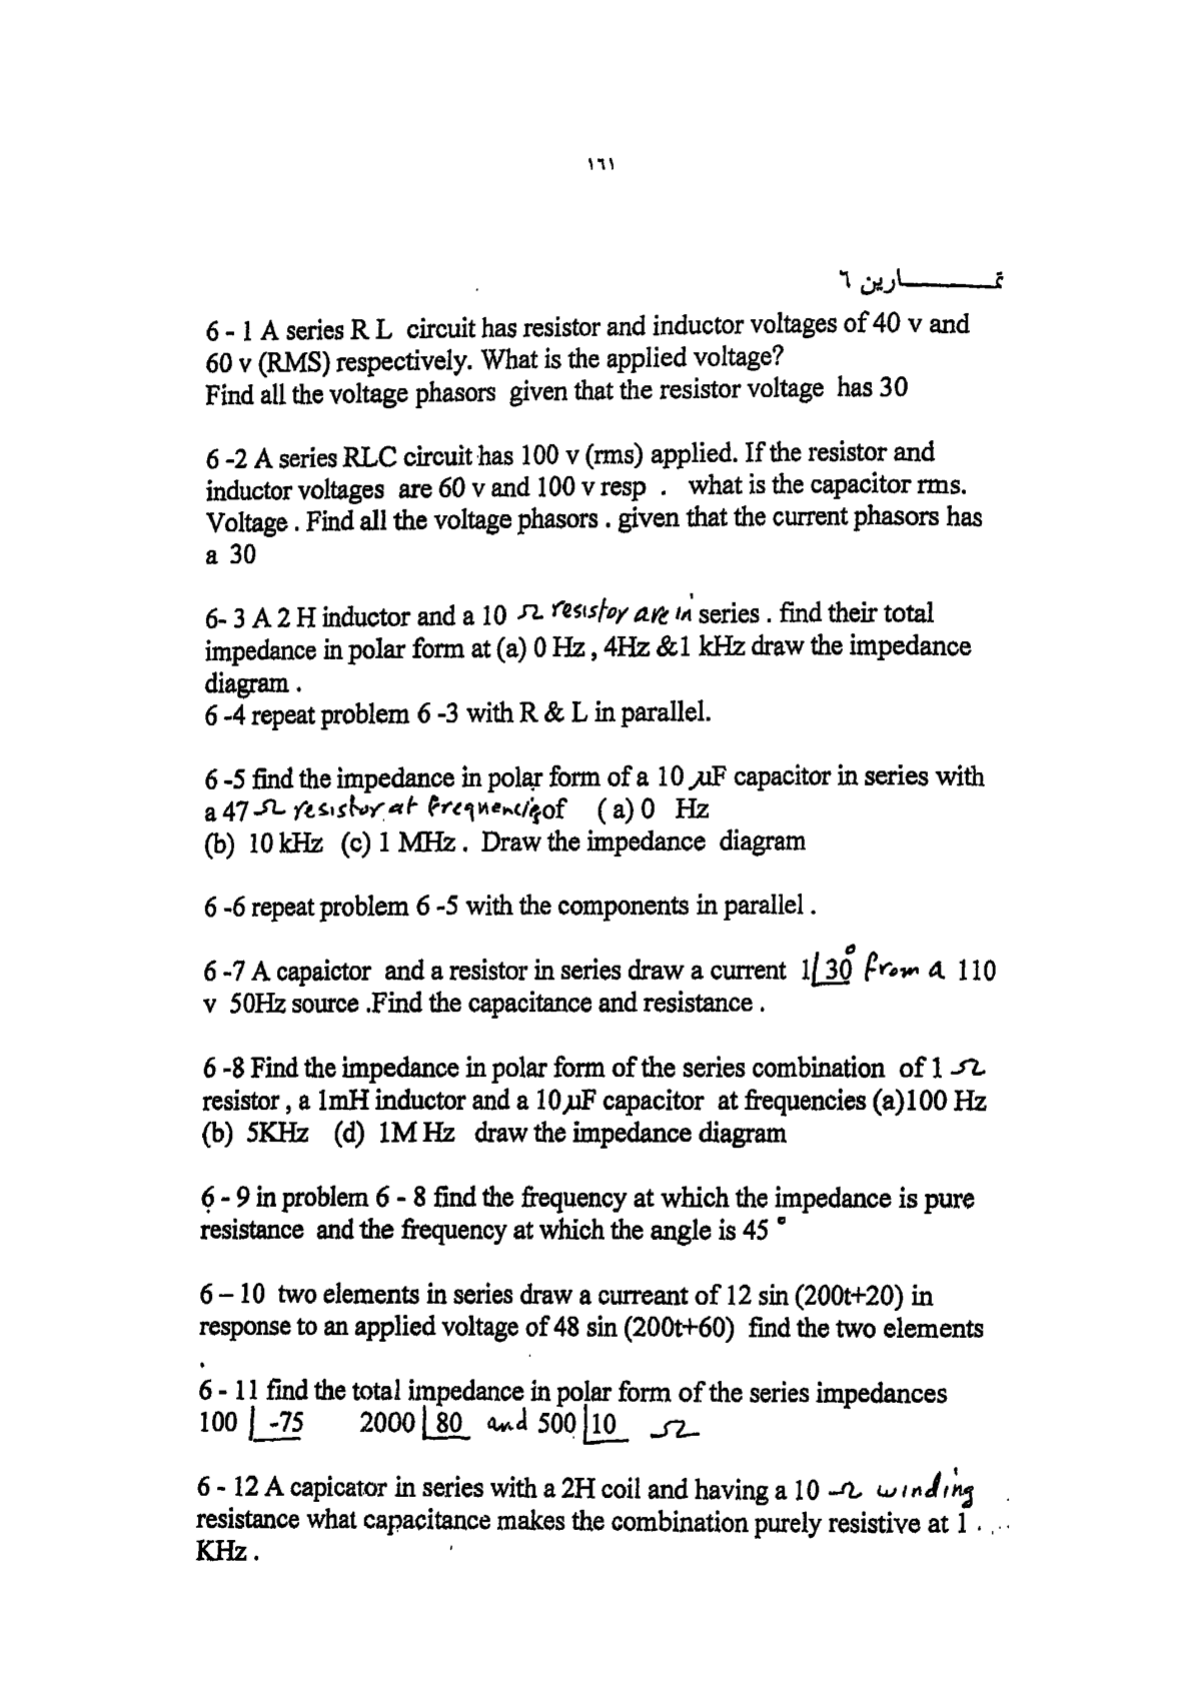 ١٦١
تمـــــــارين ٦
6 - 1 A series R L circuit has resistor and inductor voltages of 40 v and
60 v (RMS) respectively. What is the applied voltage?
Find all the voltage phasors given that the resistor voltage has 30
6 -2 A series RLC circuit has 100 v (rms) applied. If the resistor and
inductor voltages are 60 v and 100 v resp . what is the capacitor rms.
Voltage . Find all the voltage phasors . given that the current phasors has
a 30
6- 3 A 2 H inductor and a 10 Ω resistor are in series . find their total
impedance in polar form at (a) 0 Hz , 4Hz &1 kHz draw the impedance
diagram .
6 -4 repeat problem 6 -3 with R & L in parallel.
6 -5 find the impedance in polar form of a 10 µF capacitor in series with
a 47 Ω resistor at frequencies of ( a) 0 Hz
(b) 10 kHz (c) 1 MHz . Draw the impedance diagram
6 -6 repeat problem 6 -5 with the components in parallel .
6 -7 A capaictor and a resistor in series draw a current 1∠30° from a 110
v 50Hz source .Find the capacitance and resistance .
6 -8 Find the impedance in polar form of the series combination of 1 Ω
resistor , a 1mH inductor and a 10 µF capacitor at frequencies (a)100 Hz
(b) 5KHz (d) 1M Hz draw the impedance diagram
6 - 9 in problem 6 - 8 find the frequency at which the impedance is pure
resistance and the frequency at which the angle is 45 °
6 – 10 two elements in series draw a curreant of 12 sin (200t+20) in
response to an applied voltage of 48 sin (200t+60) find the two elements
.
6 - 11 find the total impedance in polar form of the series impedances
100 ∠-75 2000 ∠80 and 500 ∠10 Ω
6 - 12 A capicator in series with a 2H coil and having a 10 Ω winding
resistance what capacitance makes the combination purely resistive at 1 .
KHz .